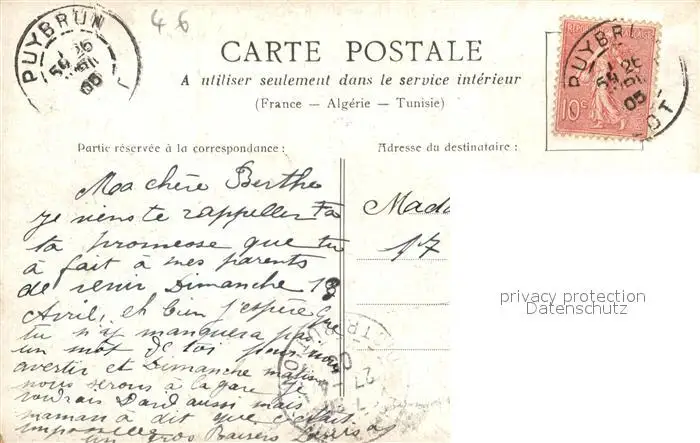 46
PUYBRUN
CARTE POSTALE
A utiliser seulement dans le service intérieur
(France — Algérie — Tunisie)
10c
PUYBR
LOT
05
05
Partie réservée à la correspondance :
Adresse du destinataire :
Ma chère Berthe
je viens te rappeller
ta promesse que tu
à fait à mes parents
de venir Dimanche 18
Avril, et bien j'espère que
tu n'y manquera pas
un mot de toi pour nous
avertir et Dimanche matin
nous serons à la gare je
voudrais Dard aussi mais
maman à dit que c'était
impossible
un gros Baisers
Mada
17
privacy protection
Datenschutz